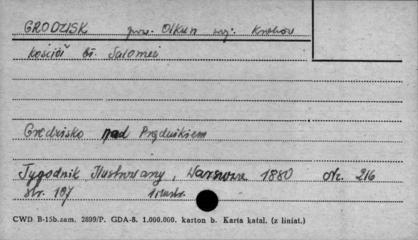 GRODZISK pow. Olkusz woj: Kraków
kościół bł. Salomei
Grodzisko nad Prądnikiem
Tygodnik Illustrowany, Warszawa 1880 Nr. 216
str. 107 1 illustr.
CWD B-15b.zam. 2899/P. GDA-8. 1.000.000. karton b. Karta katal. (z liniat.)